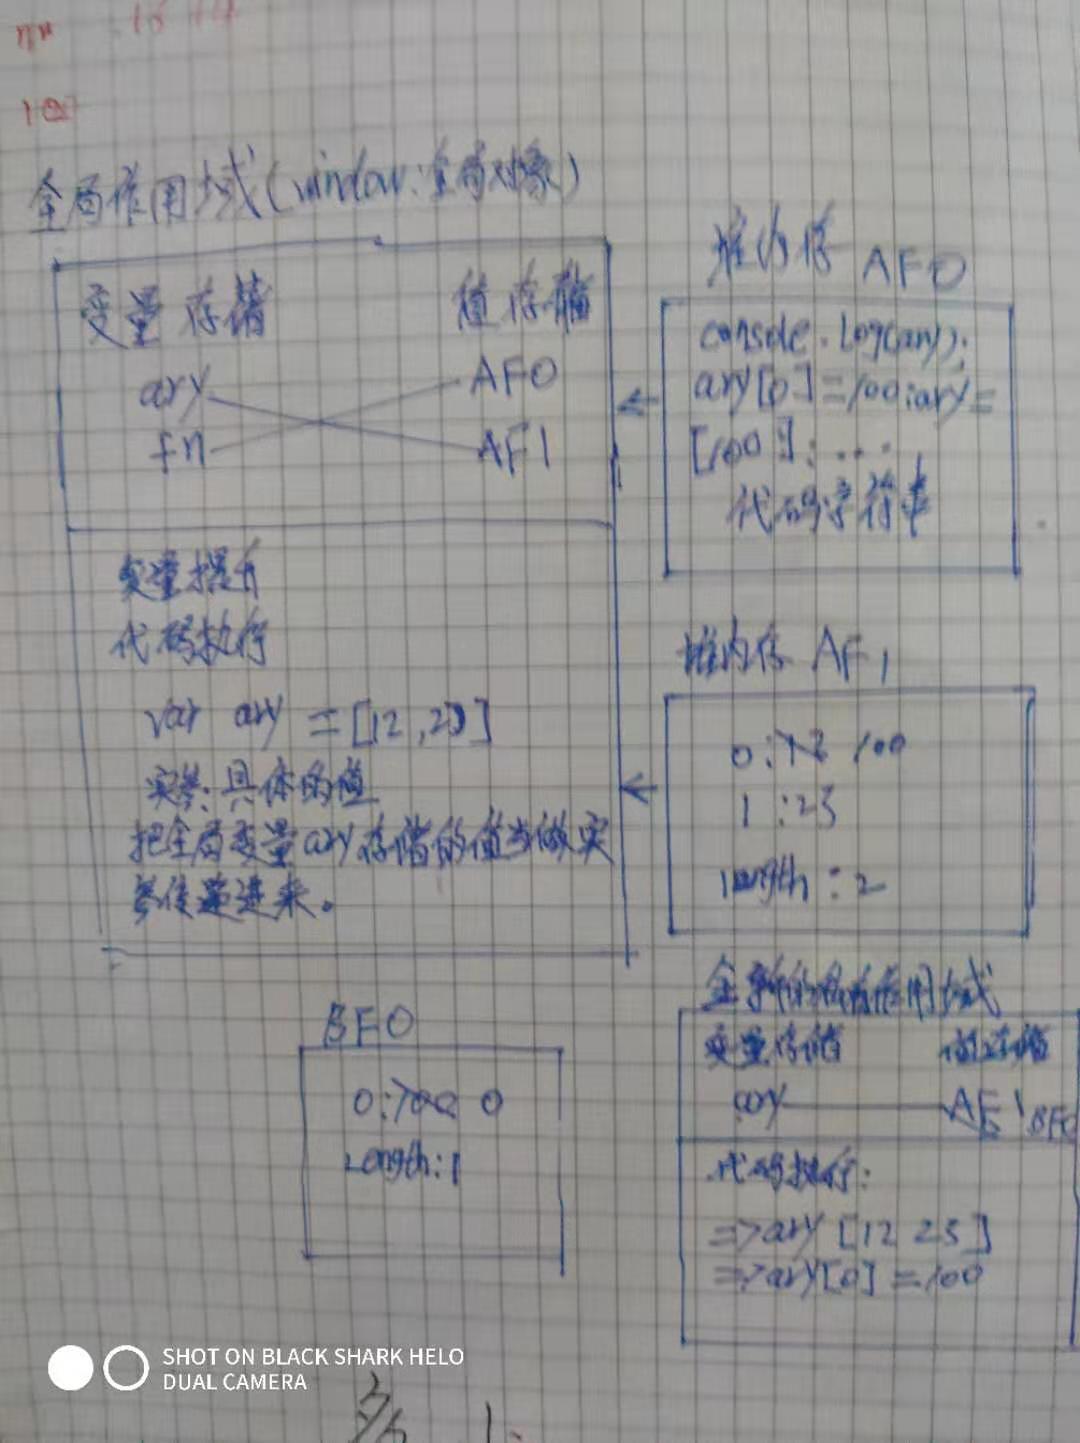 全局作用域(window:全局对象)
变量存储 值存储
ary AF0
fn AF1
变量提升
代码执行
var ary = [12,23]
实参:具体的值
把全局变量ary存储的值当做实
参传递进来。
堆内存 AF0
console.log(ary);
ary[0]=100;ary=
[100];...
代码字符串
堆内存 AF1
0:12 100
1:23
length:2
BF0
0:100 0
Length:1
全新的私有作用域
变量存储 值存储
ary AF1 BF0
代码执行:
=>ary [12 23]
=>ary[0]=100
SHOT ON BLACK SHARK HELO
DUAL CAMERA